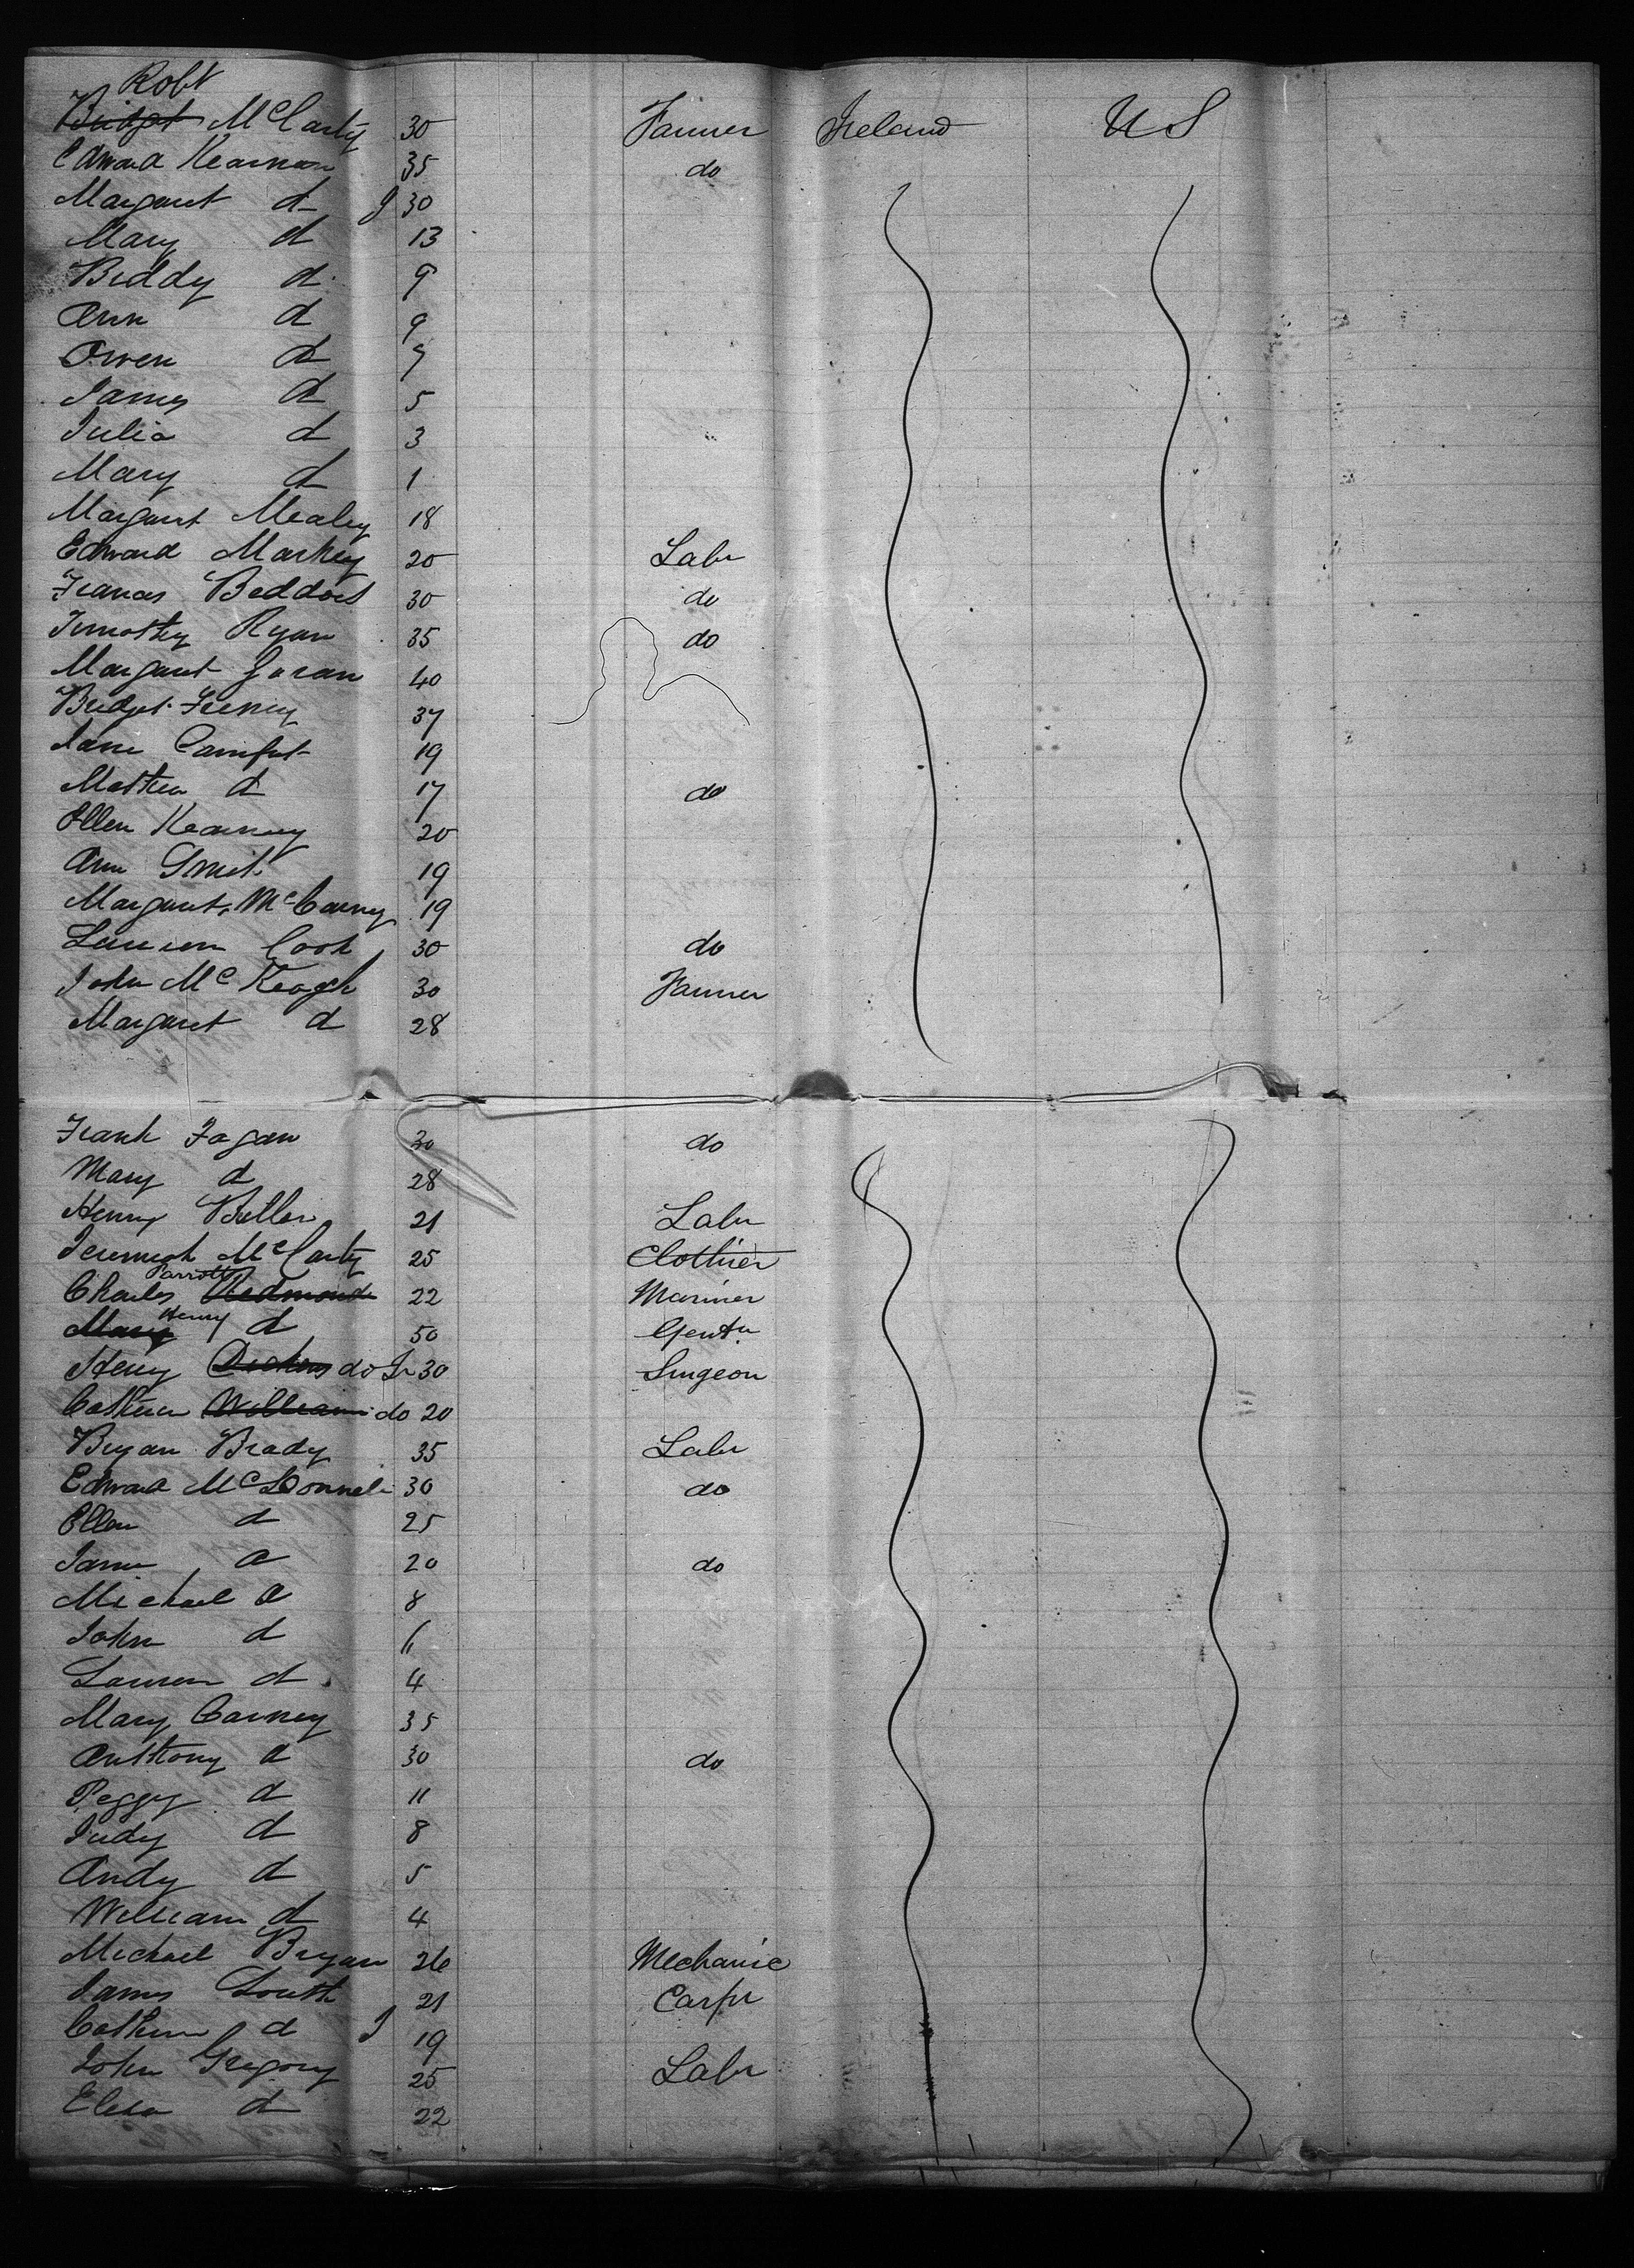 Robt
Bridget McCarty 30 Farmer Ireland US
Edward Kearnan 35 do
Margaret d 30
Mary d 13
Biddy d 9
Ann d 9
Owen d 7
James d 5
Julia d 3
Mary d 1
Margaret Mealey 18
Edward Markey 20 Labr
Francis Beddoes 30 do
Timothy Ryan 35 do
Margaret Goran 40
Bridget Feeney 37
Jane Comfort 19
Mathew d 17 do
Ellen Kearney 20
Ann Smith 19
Margaret McCarney 19
Cook 30 do
John McKeogh 30 Farmer
Margaret d 28
Frank Fagan 30 do
Mary d 28
Henry Butler 21 Labr
Jeremiah McCarty 25 Clothier
Parrott
Charles Redmond 22 Mariner
Henry
Mary d 50 Gentn
Henry do Jr 30 Surgeon
Catherine William do 20
Bryan Brady 35 Labr
Edward McDonnell 30 do
Ellen d 25
James d 20 do
Michael d 8
John d 6
Lawren d 4
Mary Carney 35
Anthony d 30 do
Peggy d 11
Judy d 8
Andy d 5
William d 4
Michael Bryan 26 Mechanic
James South 21 Carpr
Catherine d 19
John Gregory 25 Labr
Eliza d 22